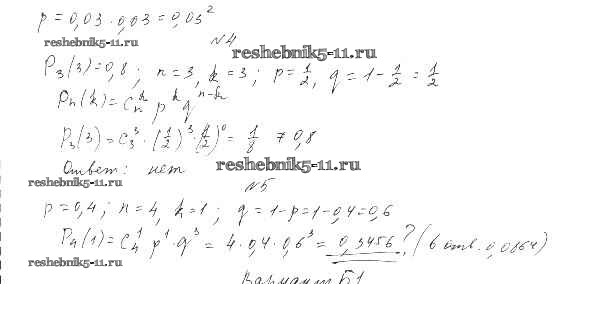 p = 0,03 · 0,03 = 0,03²
reshebnik5-11.ru
№4
reshebnik5-11.ru
P₃(3) = 0,8; n = 3, k = 3; p = 1/2, q = 1 - 1/2 = 1/2
Pₙ(k) = Cₙᵏ pᵏ qⁿ⁻ᵏ
P₃(3) = C₃³ · (1/2)³ · (1/2)⁰ = 1/8 ≠ 0,8
Ответ: нет
reshebnik5-11.ru
reshebnik5-11.ru
№5
p = 0,4; n = 4, k = 1; q = 1 - p = 1 - 0,4 = 0,6
P₄(1) = C₄¹ p¹ · q³ = 4 · 0,4 · 0,6³ = 0,3456 ? (в отв. 0,0864)
reshebnik5-11.ru
Вариант Б1